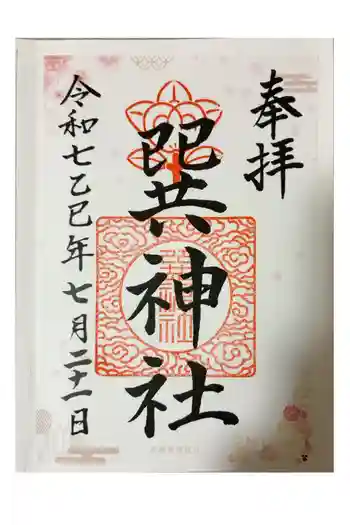 奉拝
巽神社
令和七乙巳年七月二十一日